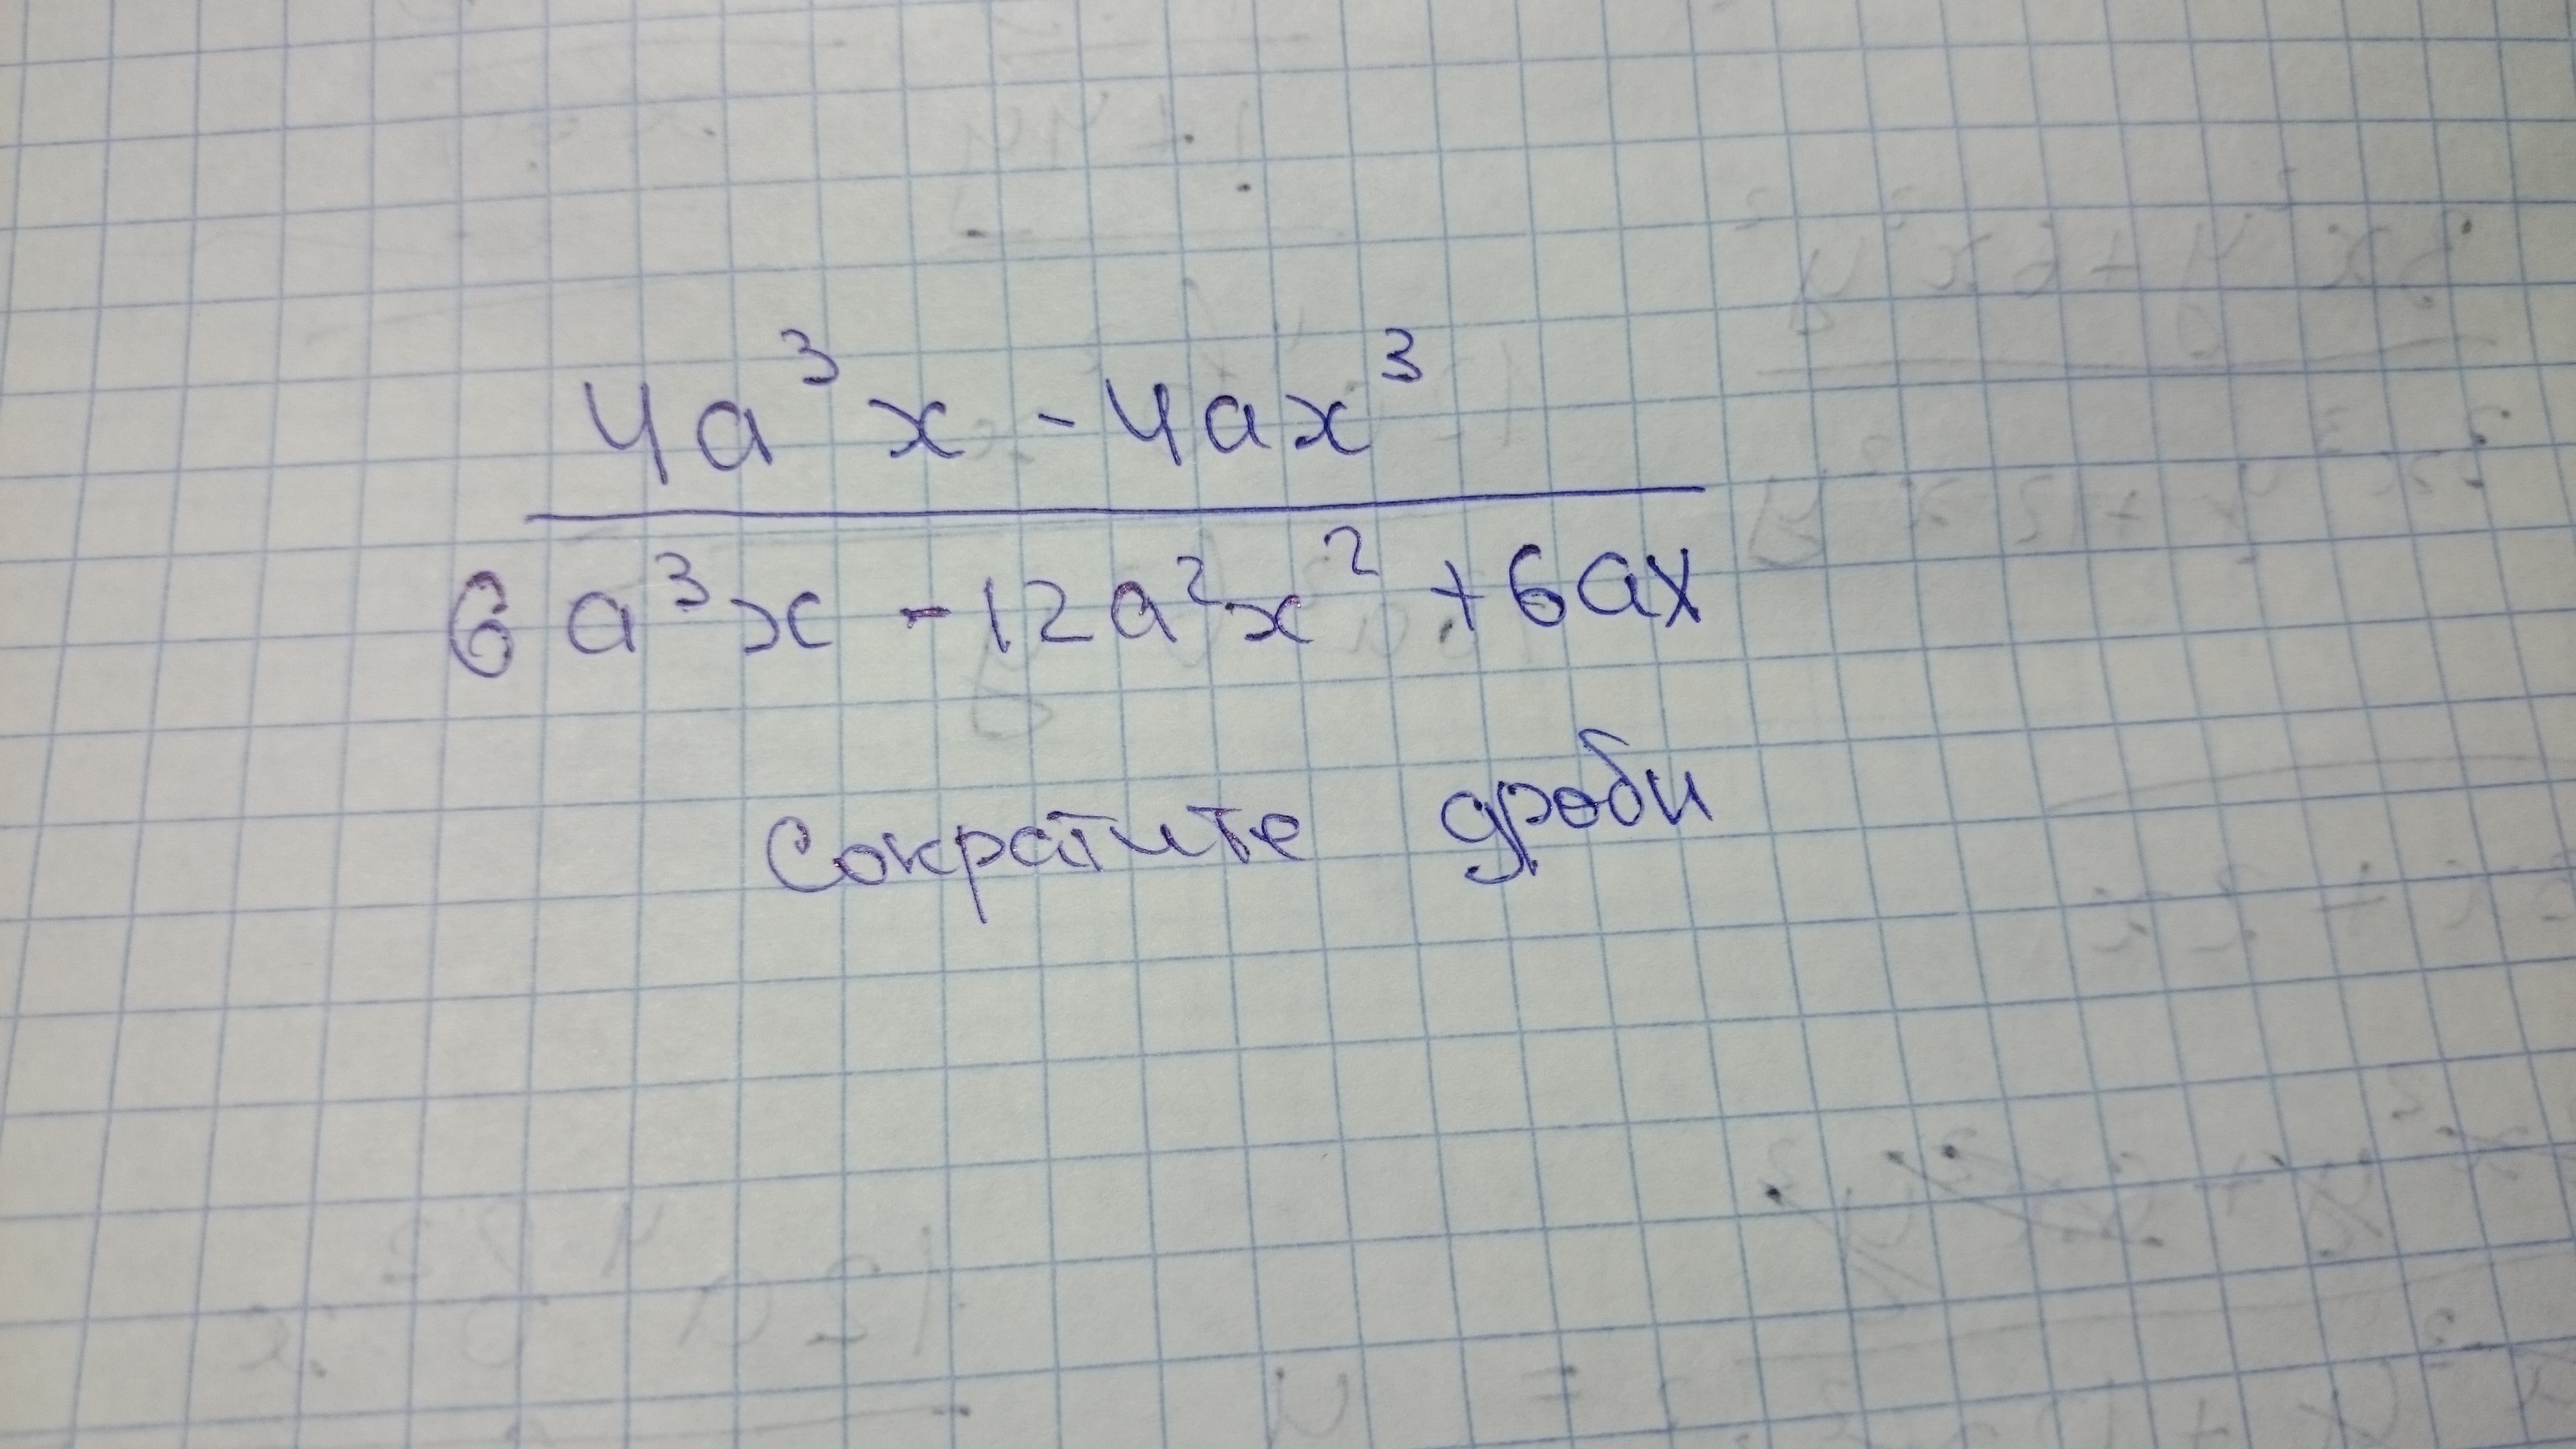 4a³x - 4ax³
6a³x - 12a²x² + 6ax
Сократите дроби